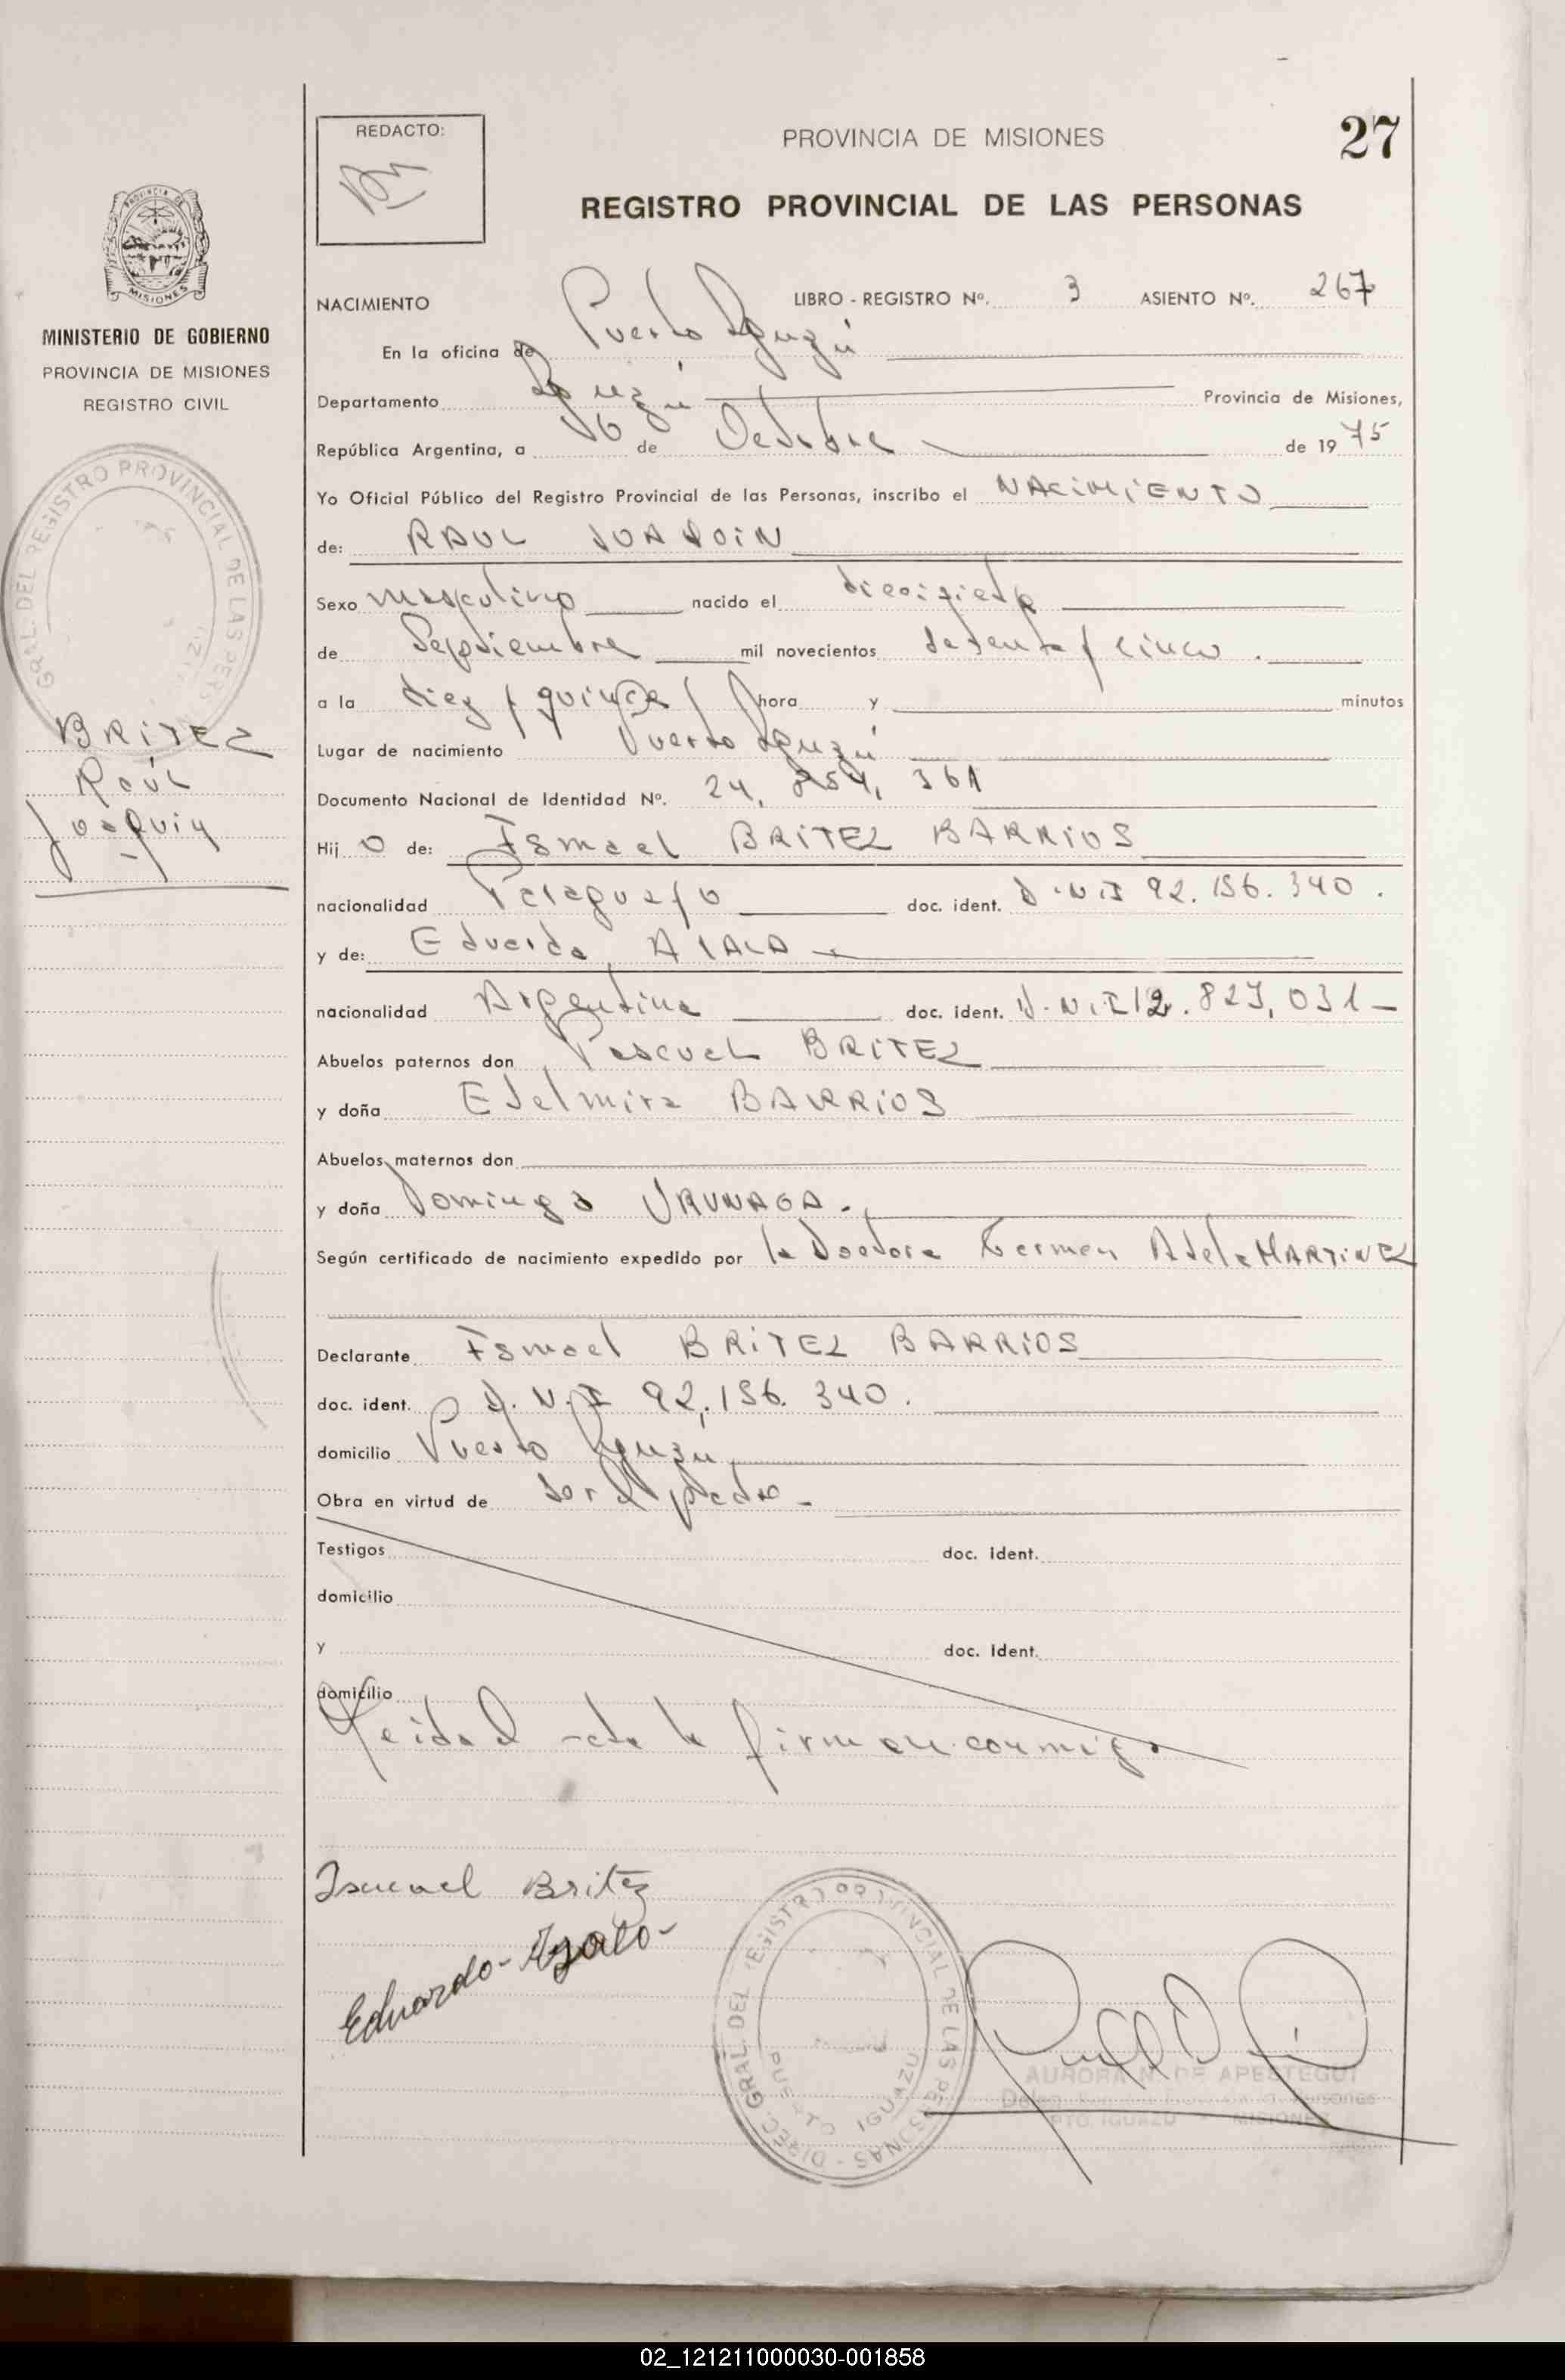 REDACTO:
PROVINCIA DE MISIONES
27
REGISTRO PROVINCIAL DE LAS PERSONAS
MISIONES
MINISTERIO DE GOBIERNO
PROVINCIA DE MISIONES
REGISTRO CIVIL
GRAL. DEL REGISTRO PROVINCIAL DE LAS PERS
BRITEZ
Raúl
Joaquin
NACIMIENTO
LIBRO - REGISTRO Nº. 3 ASIENTO Nº. 267
En la oficina de Puerto Iguazú
Departamento Iguazú Provincia de Misiones,
República Argentina, a de Octubre de 1975
Yo Oficial Público del Registro Provincial de las Personas, inscribo el NACIMIENTO
de: RAUL JOAQUIN
Sexo masculino nacido el diecisiete
de Septiembre mil novecientos setenta y cinco.
a la diez y quince hora y minutos
Lugar de nacimiento Puerto Iguazú
Documento Nacional de Identidad Nº. 24, 854, 361
Hijo de: Ismael BRITEZ BARRIOS
nacionalidad Paraguayo doc. ident. D.N.I 92.156.340.
y de: Eduarda AYALA
nacionalidad Argentina doc. ident. D.N.I 12.827,031-
Abuelos paternos don Pascual BRITEZ
y doña Edelmira BARRIOS
Abuelos maternos don
y doña Dominga URUNAGA.
Según certificado de nacimiento expedido por la Doctora Carmen Adela MARTINEZ
Declarante Ismael BRITEZ BARRIOS
doc. ident. D.N.I 92,156.340.
domicilio Puerto Iguazú
Obra en virtud de ser el padre-
Testigos doc. ident.
domicilio
y doc. ident.
domicilio
Leida el acta la firman conmigo
Ismael Britez
Eduarda-Ayala-
DIREC. GRAL. DEL REGISTRO PROVINCIAL DE LAS PERSONAS -
PUERTO IGUAZU
AURORA N. DE APESTEGUI
PTO. IGUAZU - MISIONES
02_121211000030-001858